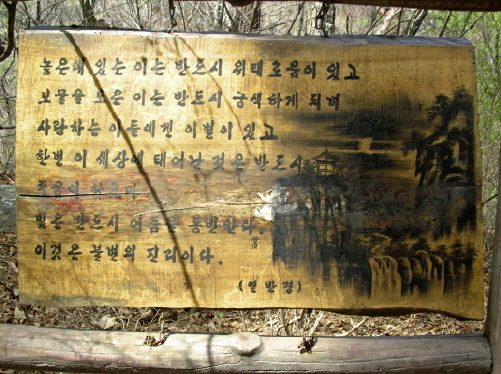 높은데 있는 이는 반드시 위태로움이 있고
보물을 모은 이는 반드시 궁색하게 되며
사랑하는 이들에겐 이별이 있고
한번 이 세상에 태어난 것은 반드시
죽음이 따른다
빛은 반드시 어둠을 동반한다.
이것은 불변의 진리이다.
(열반경)